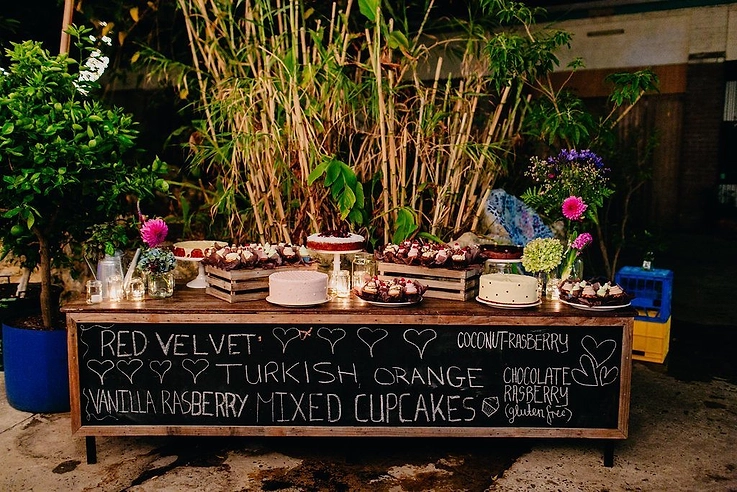 RED VELVET
COCONUT-RASBERRY
TURKISH ORANGE
CHOCOLATE
RASBERRY
(gluten free)
VANILLA RASBERRY
MIXED CUPCAKES